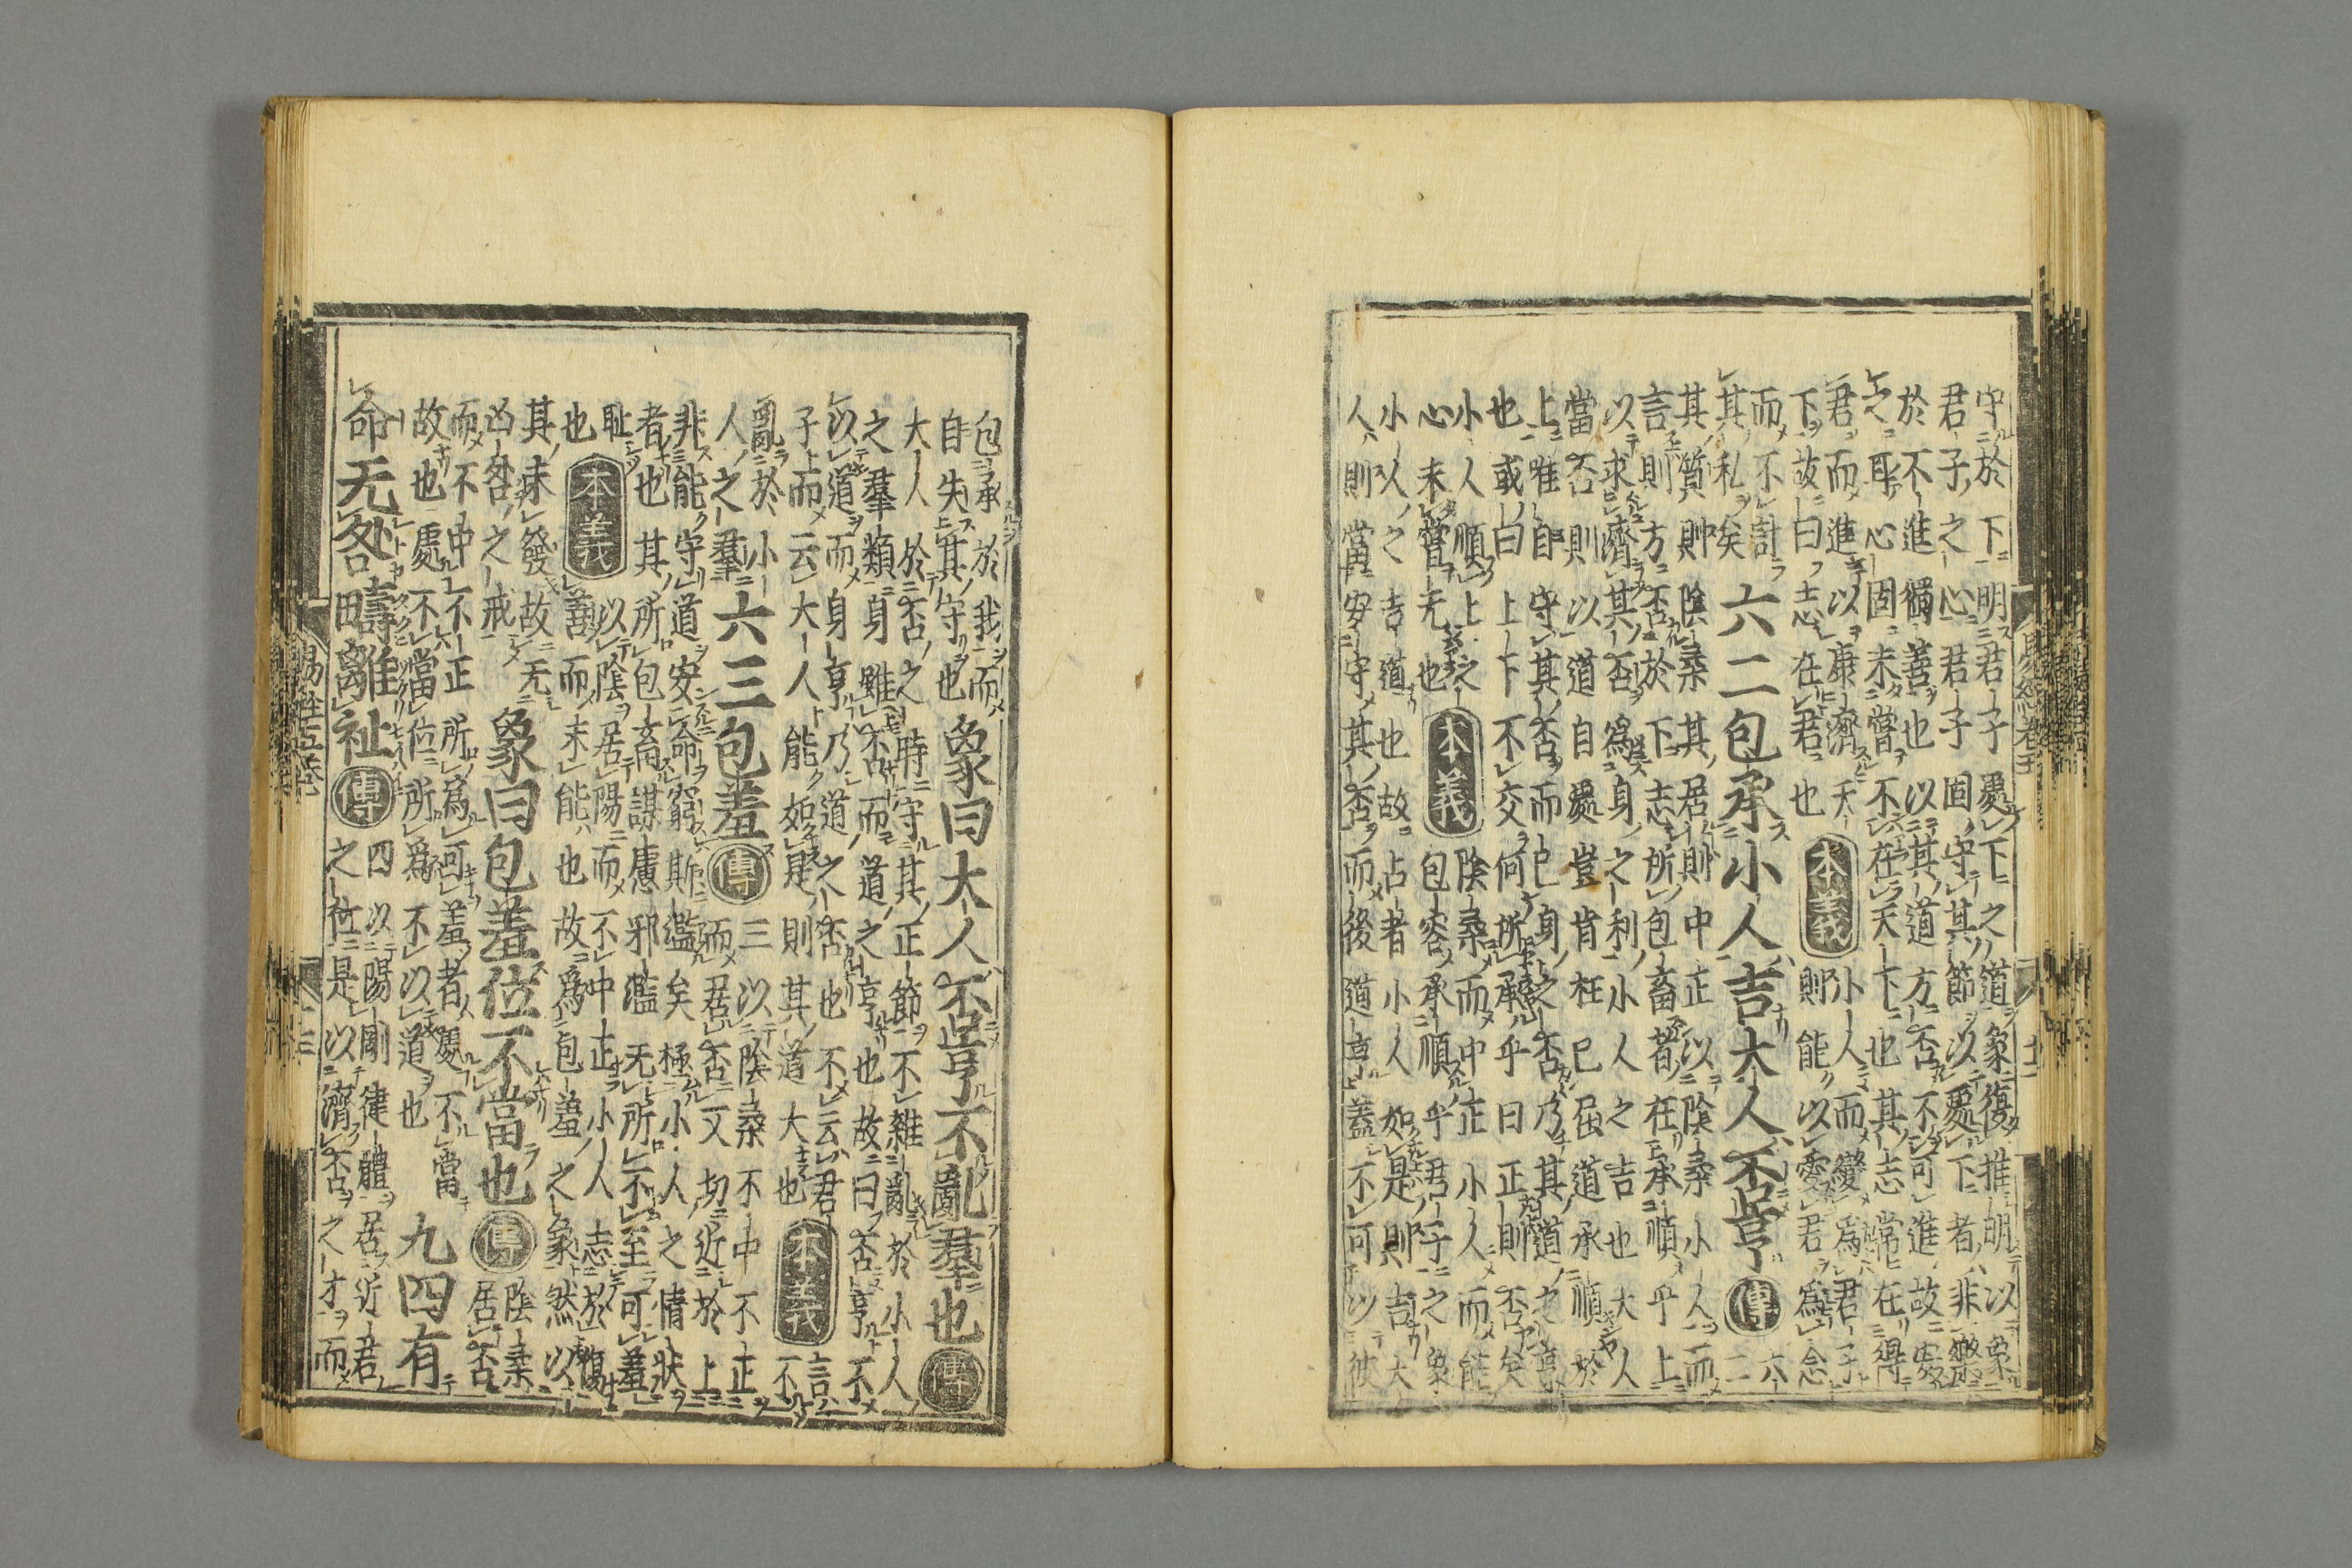 守於下明君子處下之道象復推明以象
君子之心君子固守其節以處下者非樂
於不進獨善也以其道方否不可進故安
之耳心固未嘗不在天下也其志常在得
君而進以康濟天
下故曰志在君也
本義
小人而變為君子
則能以愛君為念
而不計
其私矣
六二包承小人吉大人否亨 傳
六二
其質則陰柔其居則中正以陰柔小人而
言則方否於下志所包畜者在承順乎上
以求濟其否為身之利小人之吉也大人
當否則以道自處豈肯枉已屈道承順於
上唯自守其否而已身之否乃其道之亨
也或曰上下不交何所承乎曰正則否矣
小人順上之
心未嘗无也
本義
陰柔而中正小人而能
包容承順乎君子之象
小人之吉道也故占者小人如是則吉大
人則當安守其否而後道亨蓋不可以彼
包承於我而
自失其守也
象曰大人否亨不亂羣也 傳
大人於否之時守其正節不雜亂於小人
之羣類身雖否而道之亨也故曰否亨不
以道而身亨乃道之否也不云君
子而云大人能如是則其道大也
本義
言不
亂於小
人之羣
六三包羞 傳
三以陰柔不中不正
而居否又切近於上
非能守道安命窮斯濫矣極小人之情狀
者也其所包畜謀慮邪濫无所不至可羞
耻
也
本義
以陰居陽而不中正小人志於傷
善而未能也故為包羞之象然以
其未發故无
凶咎之戒
象曰包羞位不當也 傳
陰柔居否
而不中不正所為可羞者處不當
故也處不當位所為不以道也
九四有
命无咎疇離祉 傳
四以陽剛健體居近君
之位是以濟否之才而